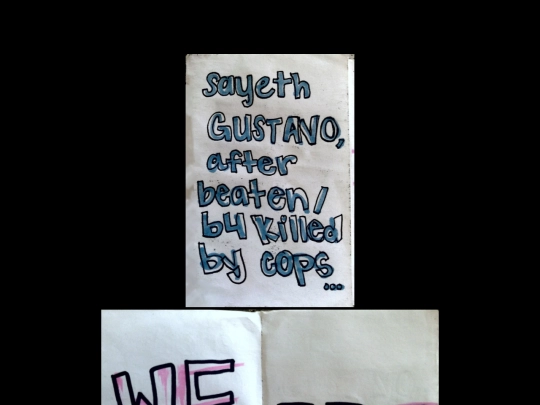 sayeth
GUSTANO,
after
beaten/
b4 killed
by cops
...
WE